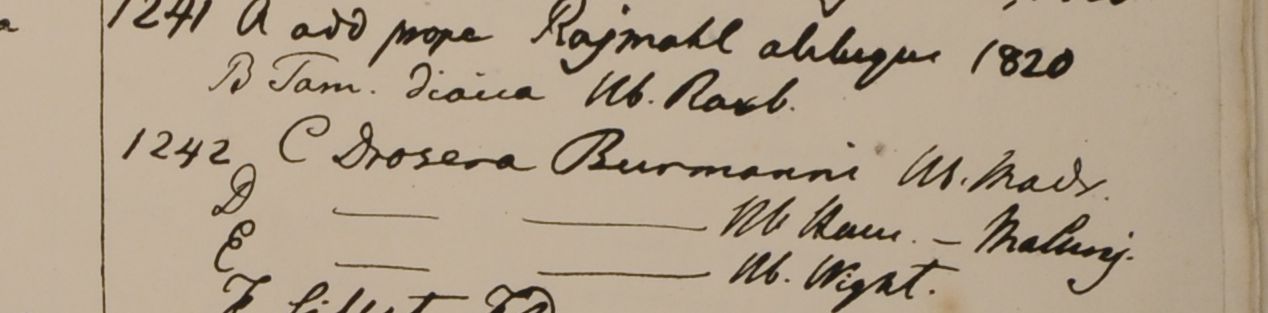 1241 A add prope Rajmahl alibique 1820
B Tam. dioica Hb. Roxb.
1242 C Drosera Burmanni Hb. Madr.
D — — Hb Ham. – Malunj.
E — — Hb. Wight.
F